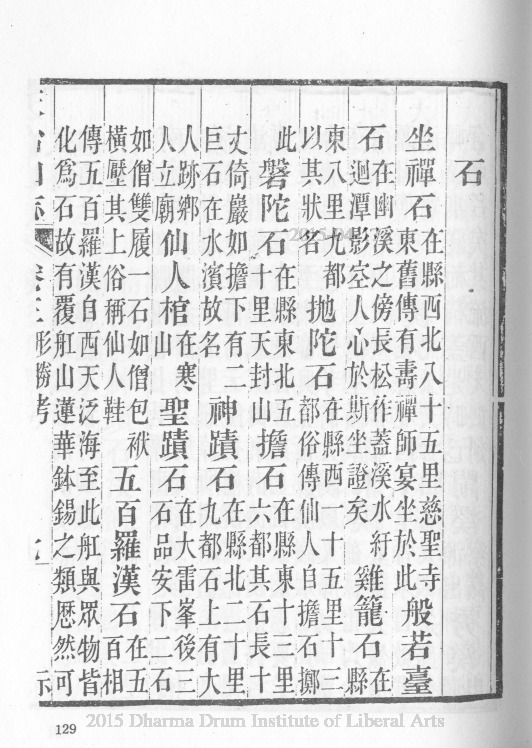 石
坐禪石在縣西北八十五里慈聖寺東舊傳有壽禪師宴坐於此般若臺
石在幽溪之傍長松作蓋溪水紆迴潭影空人心於斯坐證矣雞籠石在縣
東八里九都以其狀名拋陀石在縣西一十五里十三都俗傳仙人自擔石擲
此磐陀石在縣東北五十里天封山擔石在縣東十三里六都其石長十
丈倚巖如擔下有二巨石在水濱故名神蹟石在縣北二十里九都石上有大
人跡鄉人立廟仙人棺在寒山聖蹟石在大雷峯後三石品安下二石
如僧雙履一石如僧包袱橫壓其上俗稱仙人鞋五百羅漢石在五百相
傳五百羅漢自西天泛海至此舡與眾物皆化爲石故有覆舡山蓮華鉢錫之類歷然可
形勝考
129
2015 Dharma Drum Institute of Liberal Arts